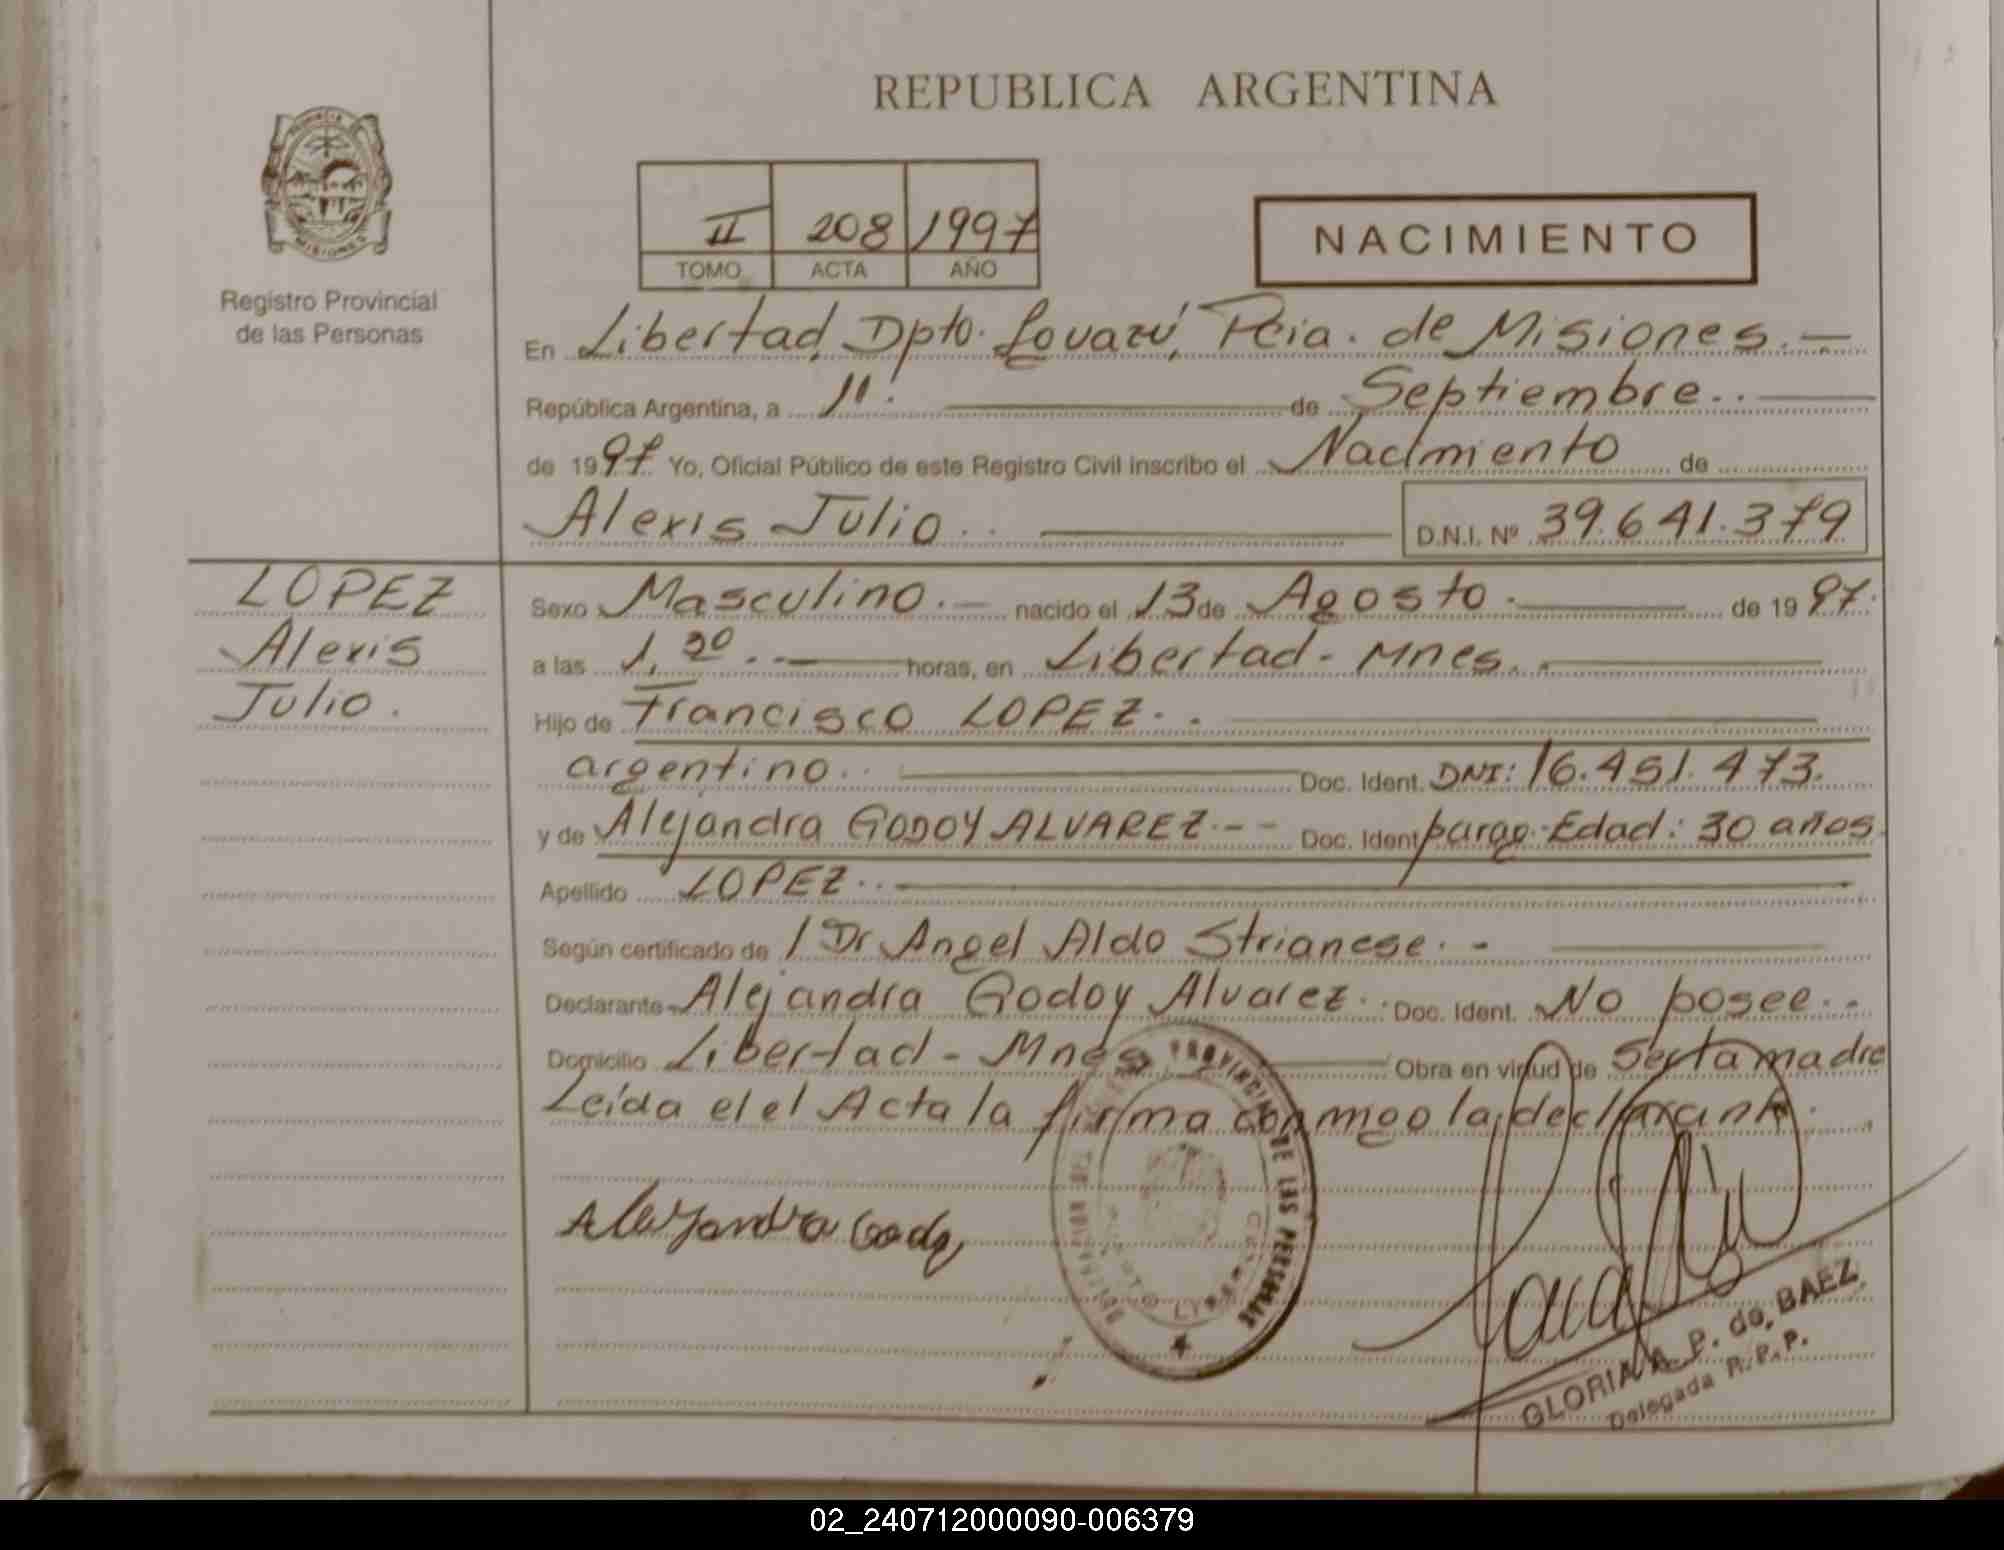 REPUBLICA ARGENTINA
PROVINCIA DE
MISIONES
Registro Provincial
de las Personas
II 208 1997
TOMO ACTA AÑO
NACIMIENTO
En Libertad, Dpto. Iguazú, Pcia. de Misiones.-
República Argentina, a 11. de Septiembre..
de 1997. Yo, Oficial Público de este Registro Civil inscribo el Nacimiento de
Alexis Julio..
D.N.I. Nº 39.641.379
LOPEZ
Alexis
Julio.
Sexo Masculino.- nacido el 13 de Agosto. de 1997.
a las 1,30..- horas, en Libertad - Mnes..
Hijo de Francisco LOPEZ..
argentino.. Doc. Ident. DNI: 16.451.473.
y de Alejandra GODOY ALVAREZ.-- Doc. Ident parag. Edad: 30 años.
Apellido LOPEZ..
Según certificado de / Dr Angel Aldo Strianese.-
Declarante Alejandra Godoy Alvarez.. Doc. Ident. No posee..
Domicilio Libertad - Mnes Obra en virtud de Serla madre
Leída el el Acta la firma conmigo la declarante.
Alejandra Godoy
PROVINCIAL DE LAS PERSONAS
GLORIA A. P. de BAEZ
Delegada R.P.P.
02_240712000090-006379